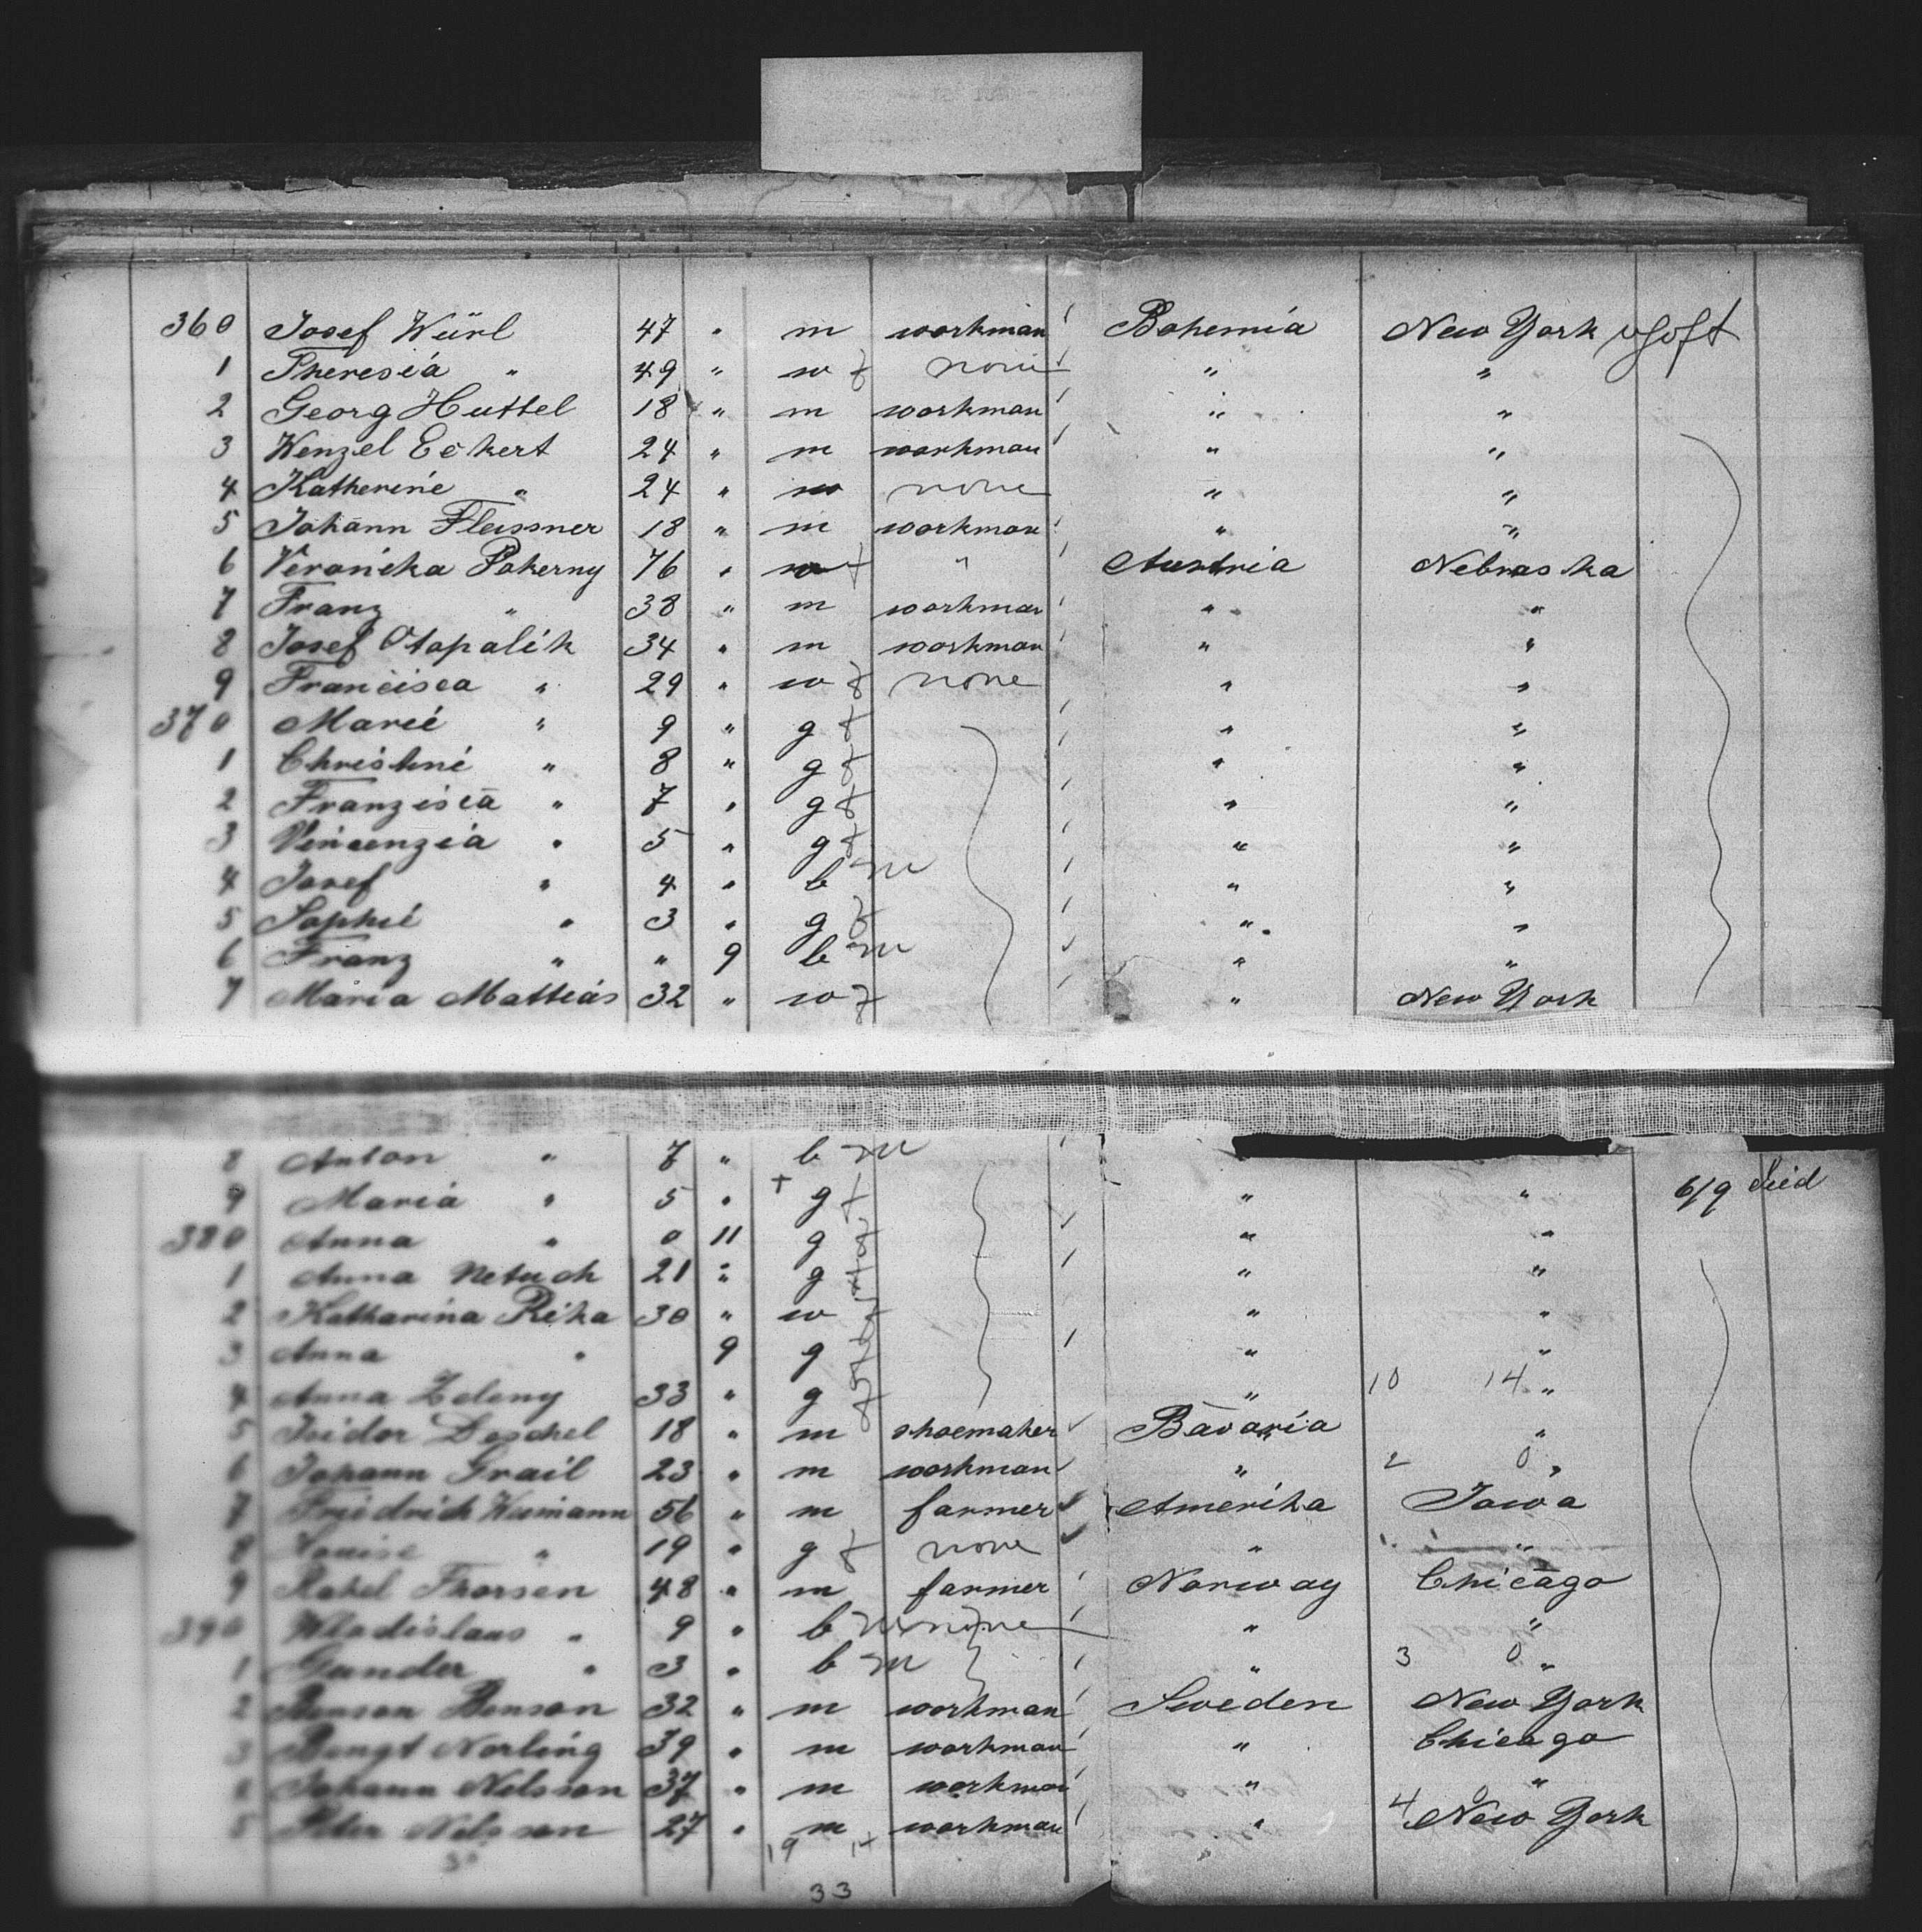 360 Josef Würl 47 " m workman Bohemia New York
1 Theresia " 49 " w f none " "
2 Georg Huttel 18 " m workman " "
3 Wenzel Eckert 24 " m workman " "
4 Katherine " 24 " w none " "
5 Johann Fleissner 18 " m workman " "
6 Veronicka Pokerny 76 " w f " Austria Nebraska
7 Franz " 38 " m workman " "
8 Josef Otopalik 34 " m workman " "
9 Francisca " 29 " w f none " "
370 Marie " 9 " g f " "
1 Christine " 8 " g f " "
2 Franzisca " 7 " g f " "
3 Vincenzia " 5 " g f " "
4 Josef " 4 " b m " "
5 Sophie " 3 " g f " "
6 Franz " " 9 b m " "
7 Maria Mattias 32 " w f " New York
8 Anton " 7 " b m
9 Maria " 5 " + g f " " 6/9 died
380 Anna " 0 11 g f " "
1 Anna Netuch 21 " g f " "
2 Katharina Rika 30 " w f " "
3 Anna " 9 g f " "
4 Anna Zeleny 33 " g f " 10 14 "
5 Isidor Deschel 18 " m shoemaker Bavaria "
6 Johann Grail 23 " m workman " 2 0 "
7 Friedrich Wiemann 56 " m farmer Amerika Iowa
8 Louise " 19 " g f none " "
9 Rakel Thorsen 48 " m farmer Norway Chicago
390 Wladislaus " 9 " b m none " "
1 Gunder " 3 " b m " 3 0 "
2 Benson Benson 32 " m workman Sweden New York
3 Bengt Norling 39 " m workman " Chicago
4 Johann Nelsson 37 " m workman " "
5 Peter Nelsson 27 " m workman " 4 0 New York
19 14
33